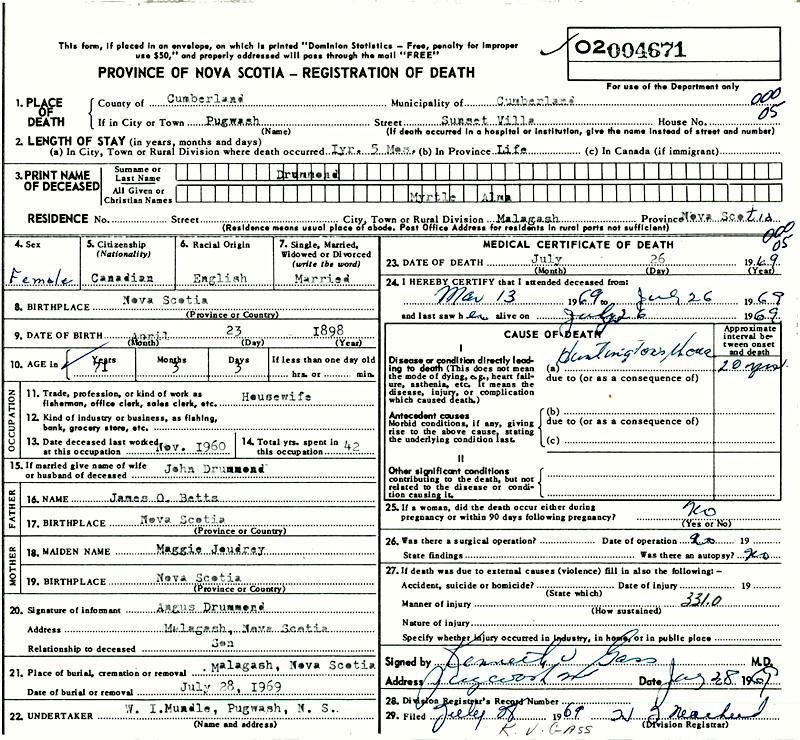 This form, if placed in an envelope, on which is printed "Dominion Statistics – Free, penalty for improper
use $50," and properly addressed will pass through the mail "FREE"
PROVINCE OF NOVA SCOTIA – REGISTRATION OF DEATH
02 004671
For use of the Department only
000
05
1. PLACE OF DEATH
County of Cumberland Municipality of Cumberland
If in City or Town Pugwash Street Sunset Villa House No.
(Name) (If death occurred in a hospital or institution, give the name instead of street and number)
2. LENGTH OF STAY (in years, months and days)
(a) In City, Town or Rural Division where death occurred 1yr. 5 Mos. (b) In Province Life (c) In Canada (if immigrant)
3. PRINT NAME OF DECEASED
Surname or Last Name Drummond
All Given or Christian Names Myrtle Alma
RESIDENCE No. Street City, Town or Rural Division Malagash Province Nova Scotia
(Residence means usual place of abode. Post Office Address for residents in rural parts not sufficient)
000
05
4. Sex Female
5. Citizenship (Nationality) Canadian
6. Racial Origin English
7. Single, Married, Widowed or Divorced (write the word) Married
8. BIRTHPLACE Nova Scotia
(Province or Country)
9. DATE OF BIRTH April 23 1898
(Month) (Day) (Year)
10. AGE in Years 71 Months 3 Days 3 If less than one day old
hrs. or min.
OCCUPATION
11. Trade, profession, or kind of work as fisherman, office clerk, sales clerk, etc. Housewife
12. Kind of industry or business, as fishing, bank, grocery store, etc.
13. Date deceased last worked at this occupation Nov. 1960
14. Total yrs. spent in this occupation 42
15. If married give name of wife or husband of deceased John Drummond
FATHER
16. NAME James O. Betts
17. BIRTHPLACE Nova Scotia
(Province or Country)
MOTHER
18. MAIDEN NAME Maggie Joudrey
19. BIRTHPLACE Nova Scotia
(Province or Country)
20. Signature of informant Angus Drummond
Address Malagash, Nova Scotia
Relationship to deceased Son
21. Place of burial, cremation or removal Malagash, Nova Scotia
Date of burial or removal July 28, 1969
22. UNDERTAKER W. I. Mundle, Pugwash, N. S.
(Name and address)
MEDICAL CERTIFICATE OF DEATH
23. DATE OF DEATH July 26 1969
(Month) (Day) (Year)
24. I HEREBY CERTIFY that I attended deceased from:
Mar 13 1969 to July 26 1969
and last saw her alive on July 26 1969
CAUSE OF DEATH
Approximate interval between onset and death
I
Disease or condition directly leading to death (This does not mean the mode of dying, e.g., heart failure, asthenia, etc. It means the disease, injury, or complication which caused death.)
(a) Huntingtons Chorea 20 yrs
due to (or as a consequence of)
Antecedent causes
Morbid conditions, if any, giving rise to the above cause, stating the underlying condition last.
(b)
due to (or as a consequence of)
(c)
II
Other significant conditions
contributing to the death, but not related to the disease or condition causing it.
25. If a woman, did the death occur either during pregnancy or within 90 days following pregnancy? No
(Yes or No)
26. Was there a surgical operation? Date of operation No 19
State findings Was there an autopsy? No
27. If death was due to external causes (violence) fill in also the following:–
Accident, suicide or homicide? Date of injury 19
(State which)
Manner of injury 331.0
(How sustained)
Nature of injury
Specify whether injury occurred in industry, in home, or in public place
Signed by Kenneth V Gass M.D.
Address Pugwash NS Date July 28 1969
28. Division Registrar's Record Number
29. Filed July 1969
(Division Registrar)
K. V. GASS